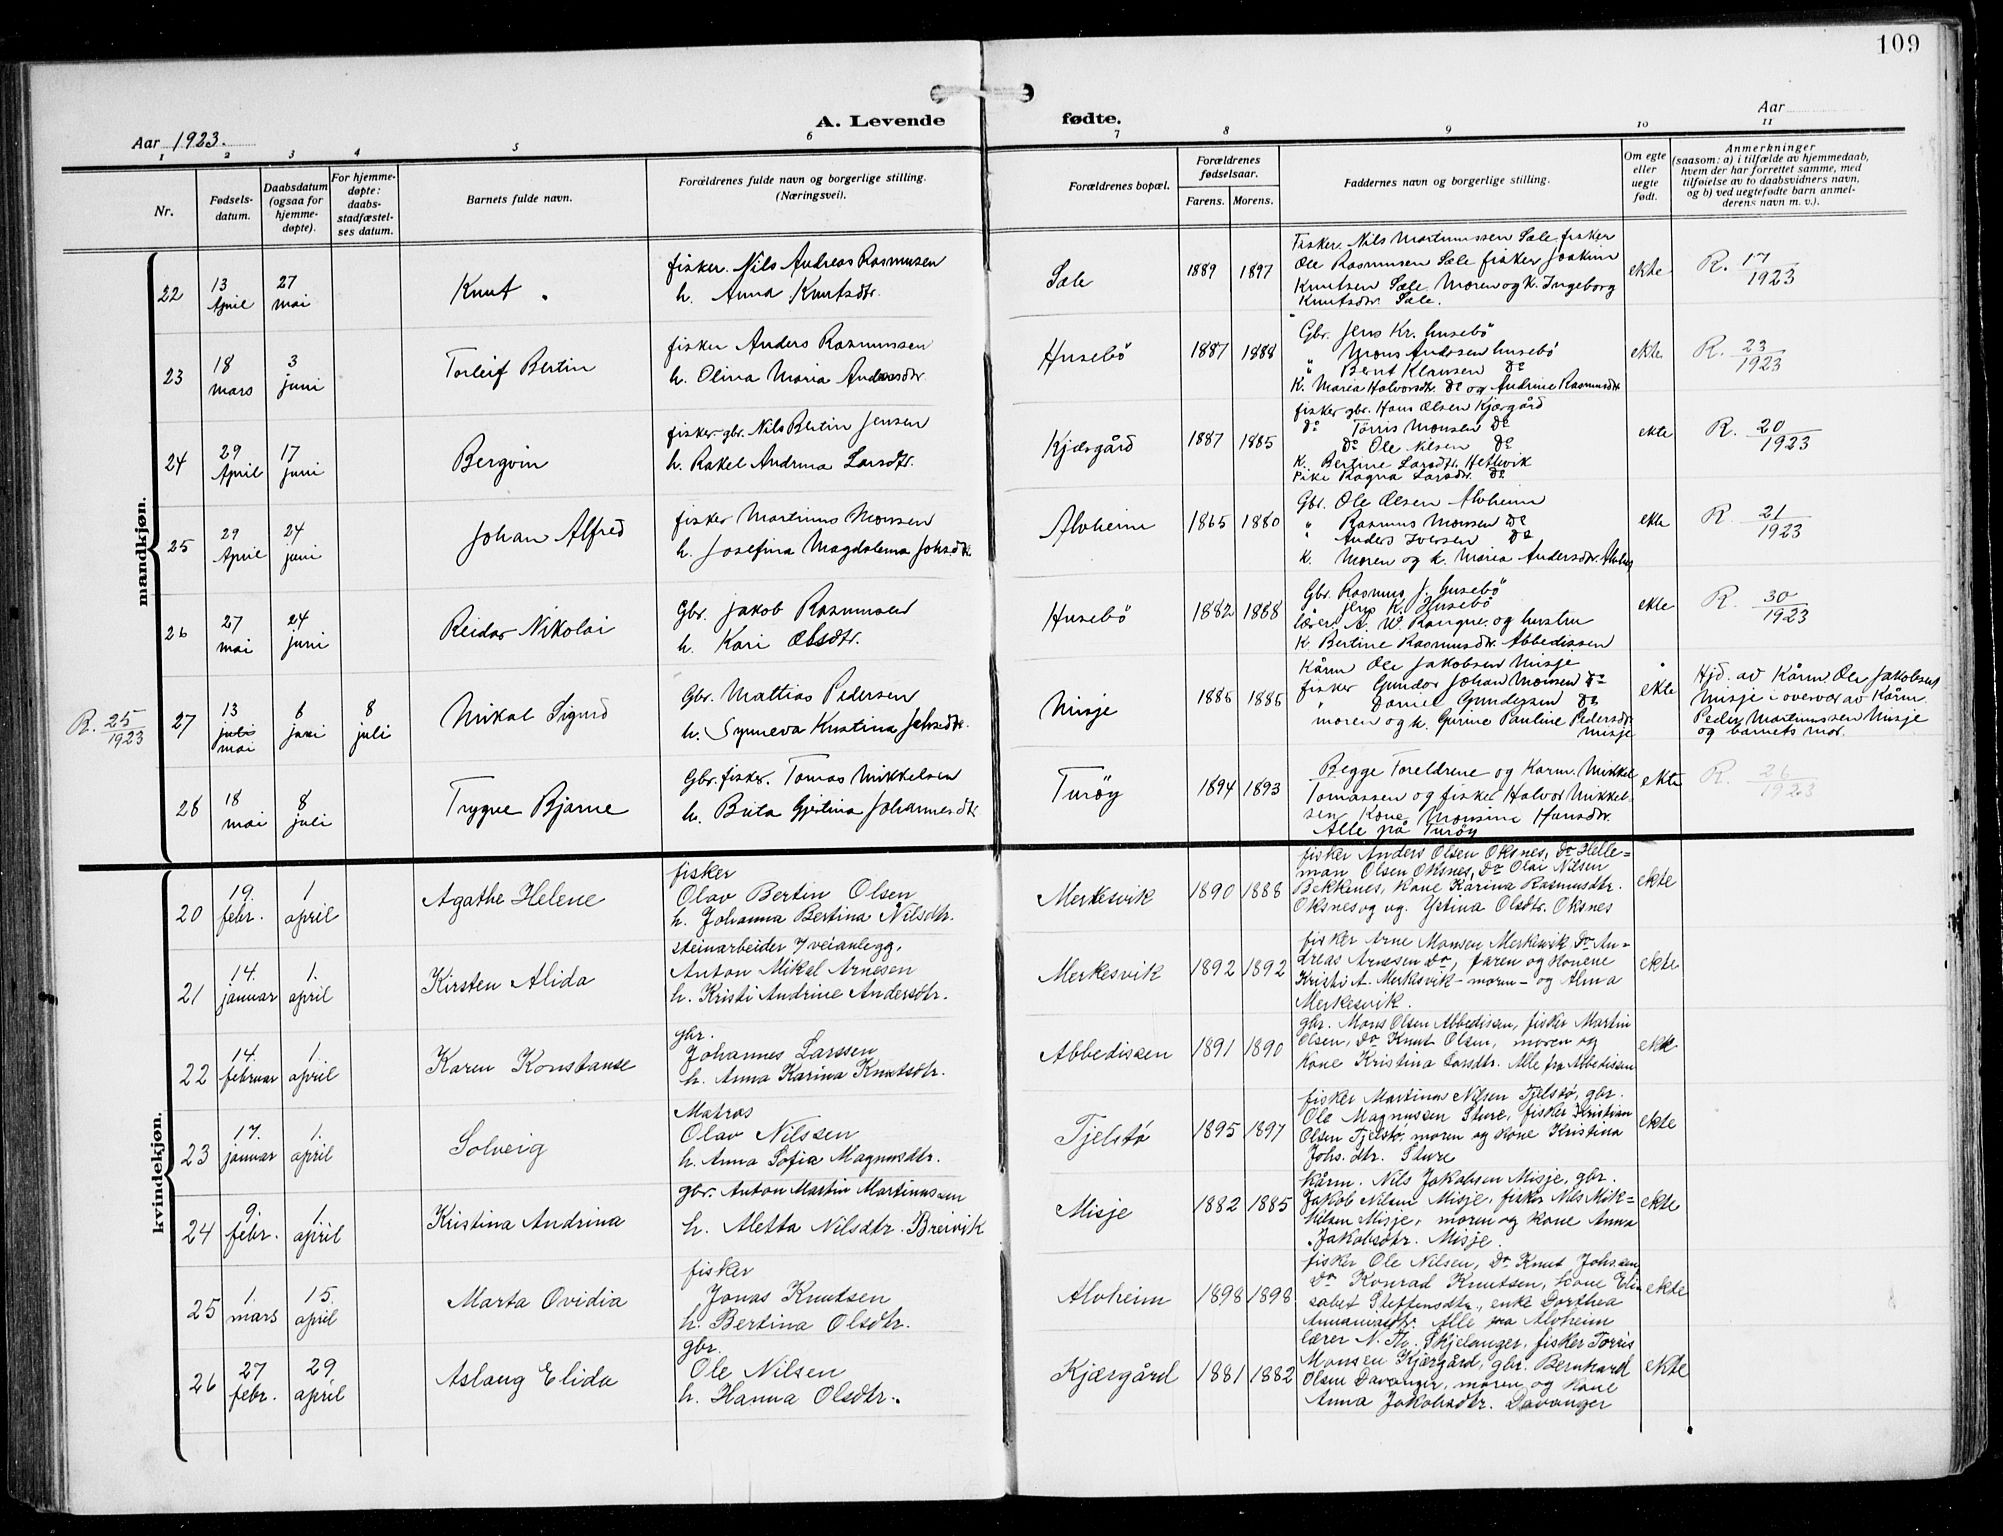 109
Aar 1923.
A. Levende fødte.
Aar
1 2 3 4 5 6 7 8 9 10 11
Nr.
Fødsels-
datum.
Daabsdatum
(ogsaa for
hjemme-
døpte).
For hjemme-
døpte:
daabs-
stadfæstel-
ses datum.
Barnets fulde navn.
Forældrenes fulde navn og borgerlige stilling.
(Næringsvei).
Forældrenes bopæl.
Forældrenes
fødselsaar.
Farens. Morens.
Faddernes navn og borgerlige stilling.
Om egte
eller
uegte
født.
Anmerkninger
(saasom: a) i tilfælde av hjemmedaab,
hvem der har forrettet samme, med
tilføielse av to daabsvidners navn,
og b) ved uegtefødte barn anmel-
derens navn m. v.).
mandkjøn.
22
13
April
27
mai
Knut
fisker. Nils Andreas Rasmusen
h. Anna Knutsdtr.
Sæle
1889 1897
Fisker. Nils Martinussen Sæle, fisker
Ole Rasmusen Sæle fisker Joakim
Knutsen Sæle Moren og k. Ingeborg
Knutsdtr. Sæle.
ekte
R. 17
1923
23
18
mars
3
juni
Torleif Bertin
fisker Anders Rasmussen
h. Olina Maria Andersdtr.
Husebö
1887 1888
Gbr. Jens Kr. Husebö
" Mons Andersen Husebö
" Bernt Klausen Do
K. Maria Halvorsdtr. Do og Andrine Rasmusdtr
ekte
R. 23
1923
24
29
April
17
juni
Bergvin
fisker-gbr. Nils Bertin Jensen
h. Rakel Andrina Larsdtr.
Kjærgård
1887 1885
fisker gbr. Hans Olsen Kjærgård
Do Torris Monsen Do
Do Ole Nilsen Do
K. Bertine Larsdtr. Hellevik
Pike Ragna Larsdtr. Do
ekte
R. 20
1923
25
29
April
24
juni
Johan Alfred
fisker Martinus Monsen
h. Josefina Magdalena Johsdtr.
Alvheim
1865 1880
Gbr. Ole Olsen Alvheim
" Rasmus Monsen Do
" Anders Iversen Do
K. Moren og k. Maria Andersdtr. Alvheim
ekte
R. 21
1923
26
27
mai
24
juni
Reidar Nikolai
Gbr. Jakob Rasmusen
h. Kari Olsdtr.
Husebö
1882 1888
Gbr. Rasmus J. Husebö
" Jens K. Husebö
lærer A. W. Rangne. og hustru
K. Bertine Rasmusdtr. Abbedissen
ekte
R. 30
1923
R. 25
1923
27
13
juli
mai
8
juni
8
juli
Mikal Sigurd
Gbr. Mattias Pedersen
h. Synneva Kristina Johsdtr.
Misje
1885 1885
Kårm Ole Jakobsen Misje
fisker Gunder Johan Monsen Do
" Daniel Gundersen Do
moren og k. Gurine Pauline Pedersdtr
Misje
ekte
Hjd. av Kårm Ole Jakobsen
Misje i overvær av Kårm.
Peder Martinussen Misje
og barnets mor.
28
18
mai
8
juli
Trygve Bjarne
Gbr. fisker. Tomas Mikkelsen
h. Brita Gjertina Johannesdtr
Turöy
1894 1893
Begge Foreldrene og Kårm. Mikkel
Tomassen og fisker Halvor Mikkel-
sen Kone Monsine Hansdtr.
Alle på Turöy
ekte
R. 26
1923
kvindekjøn.
20
19.
febr.
1.
april
Agathe Helene
fisker
Olav Bertin Olsen
h. Johanna Bertina Nilsdtr.
Merkesvik
1890 1888
fisker Anders Olsen Oksnes, Do Helle-
man Olsen Oksnes, Do Olai Nilsen
Bekknes, Kone Karina Rasmusdtr.
Oksnes og ug. Ystina Olsdtr. Oksnes
ekte
21
14.
januar
1.
april
Kirsten Alida
steinarbeider v/ veianlegg,
Anton Mikal Arnesen
h. Kristi Andrine Andersdtr.
Merkesvik
1892 1892
fisker Arne Monsen Merkesvik, Do An-
dreas Arnesen Do, faren og konene
Kristi A. Merkesvik - moren - og Alma
Merkesvik.
ekte
22
14.
februar
1.
april
Karen Konstanse
gbr.
Johannes Larssen
h. Anna Karina Knutsdtr.
Abbedissen
1891 1890
gbr. Mons Olsen Abbedissen, fisker Martin
Olsen, Do Knut Olsen, moren og
kone Kristina Larsdtr. Alle fra Abbedissen
ekte
23
17.
januar
1.
april
Solveig
Matros
Olav Nilssen
h. Anna Sofia Magnusdtr.
Tjelstø
1895 1897
fisker Martinus Nilsen Tjelstø, gbr.
Ole Magnussen Sture, fisker Kristian
Olsen Tjelstø, moren og kone Kristina
Johs. dtr. Sture
ekte
24
9.
febr.
1.
april
Kristina Andrina
gbr. Anton Martin Martinussen
h. Aletta Nilsdtr. Breivik
Misje
1882 1885
kårm. Nils Jakobsen Misje, gbr.
Jakob Nilsen Misje, fisker Nils Mik-
Nilsen Misje, moren og kone Anna
Jakobsdtr. Misje.
ekte
25
1.
mars
15.
april
Marta Ovidia
fisker
Jonas Knutsen
h. Bertina Olsdtr.
Alvheim
1898 1898
fisker Ole Nilsen, Do Knut Johssen,
Do Konrad Knutsen, kone Eli-
sabet Steffensdtr., enke Dorthea
Annaniasdtr. Alle fra Alvheim
ekte
26
27
febr.
29.
april
Aslaug Elida
gbr.
Ole Nilsen
h. Hanna Olsdtr.
Kjærgård
1881 1882
lærer N. Th. Skjelanger, fisker Torris
Monsen Kjærgård, gbr. Bernhard
Olsen Davanger, moren og kone
Anna Jakobsdtr. Davanger
ekte